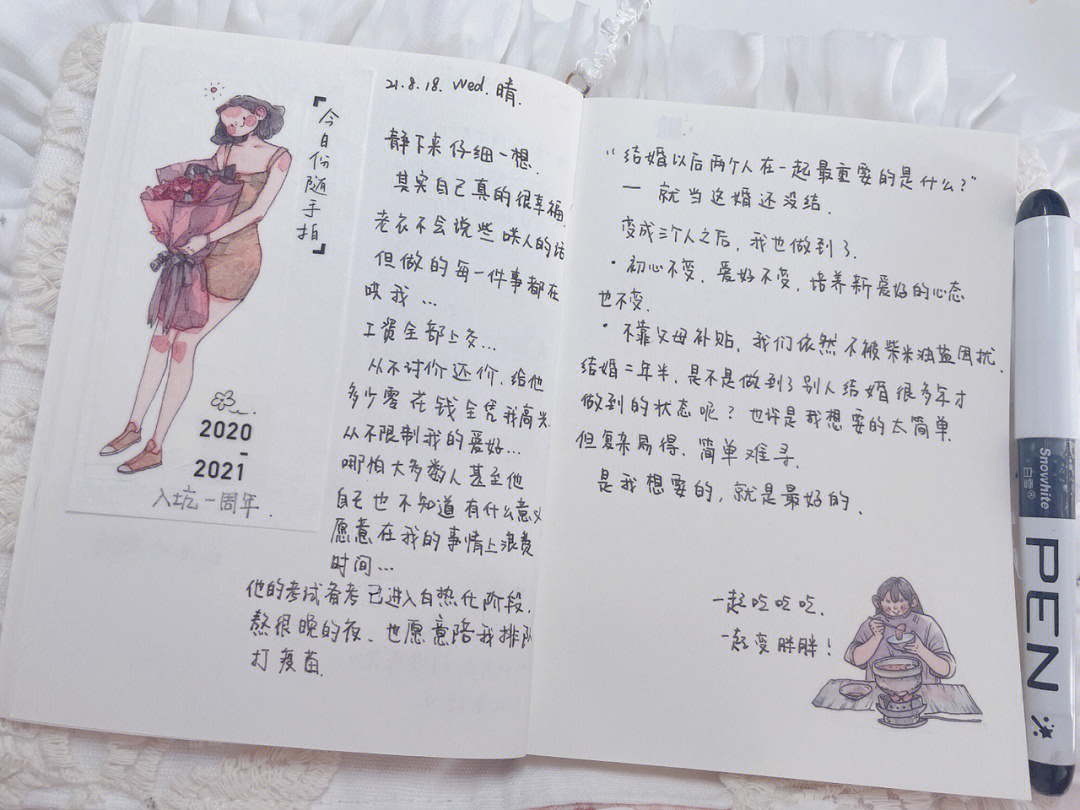 『今日份随手拍』
2020
-
2021
入坑一周年.
21.8.18. Wed. 晴.
静下来仔细一想.
其实自己真的很幸福
老衣不会说些哄人的话
但做的每一件事都在
哄我...
工资全部上交...
从不讨价还价.给他
多少零花钱全凭我高兴
从不限制我的爱好...
哪怕大多数人甚至他
自己也不知道有什么意义
愿意在我的事情上浪费
时间...
他的考试备考已进入白热化阶段,
熬很晚的夜、也愿意陪我排队
打疫苗.
“结婚以后两个人在一起最重要的是什么?”
— 就当这婚还没结.
变成三个人之后,我也做到了.
·初心不变、爱好不变、培养新爱好的心态
也不变.
·不靠父母补贴,我们依然不被柴米油盐困扰.
结婚二年半,是不是做到了别人结婚很多年才
做到的状态呢?也许是我想要的太简单.
但复杂易得、简单难寻.
是我想要的,就是最好的.
一起吃吃吃.
一起变胖胖!
Snowhite
白雪®
PEN